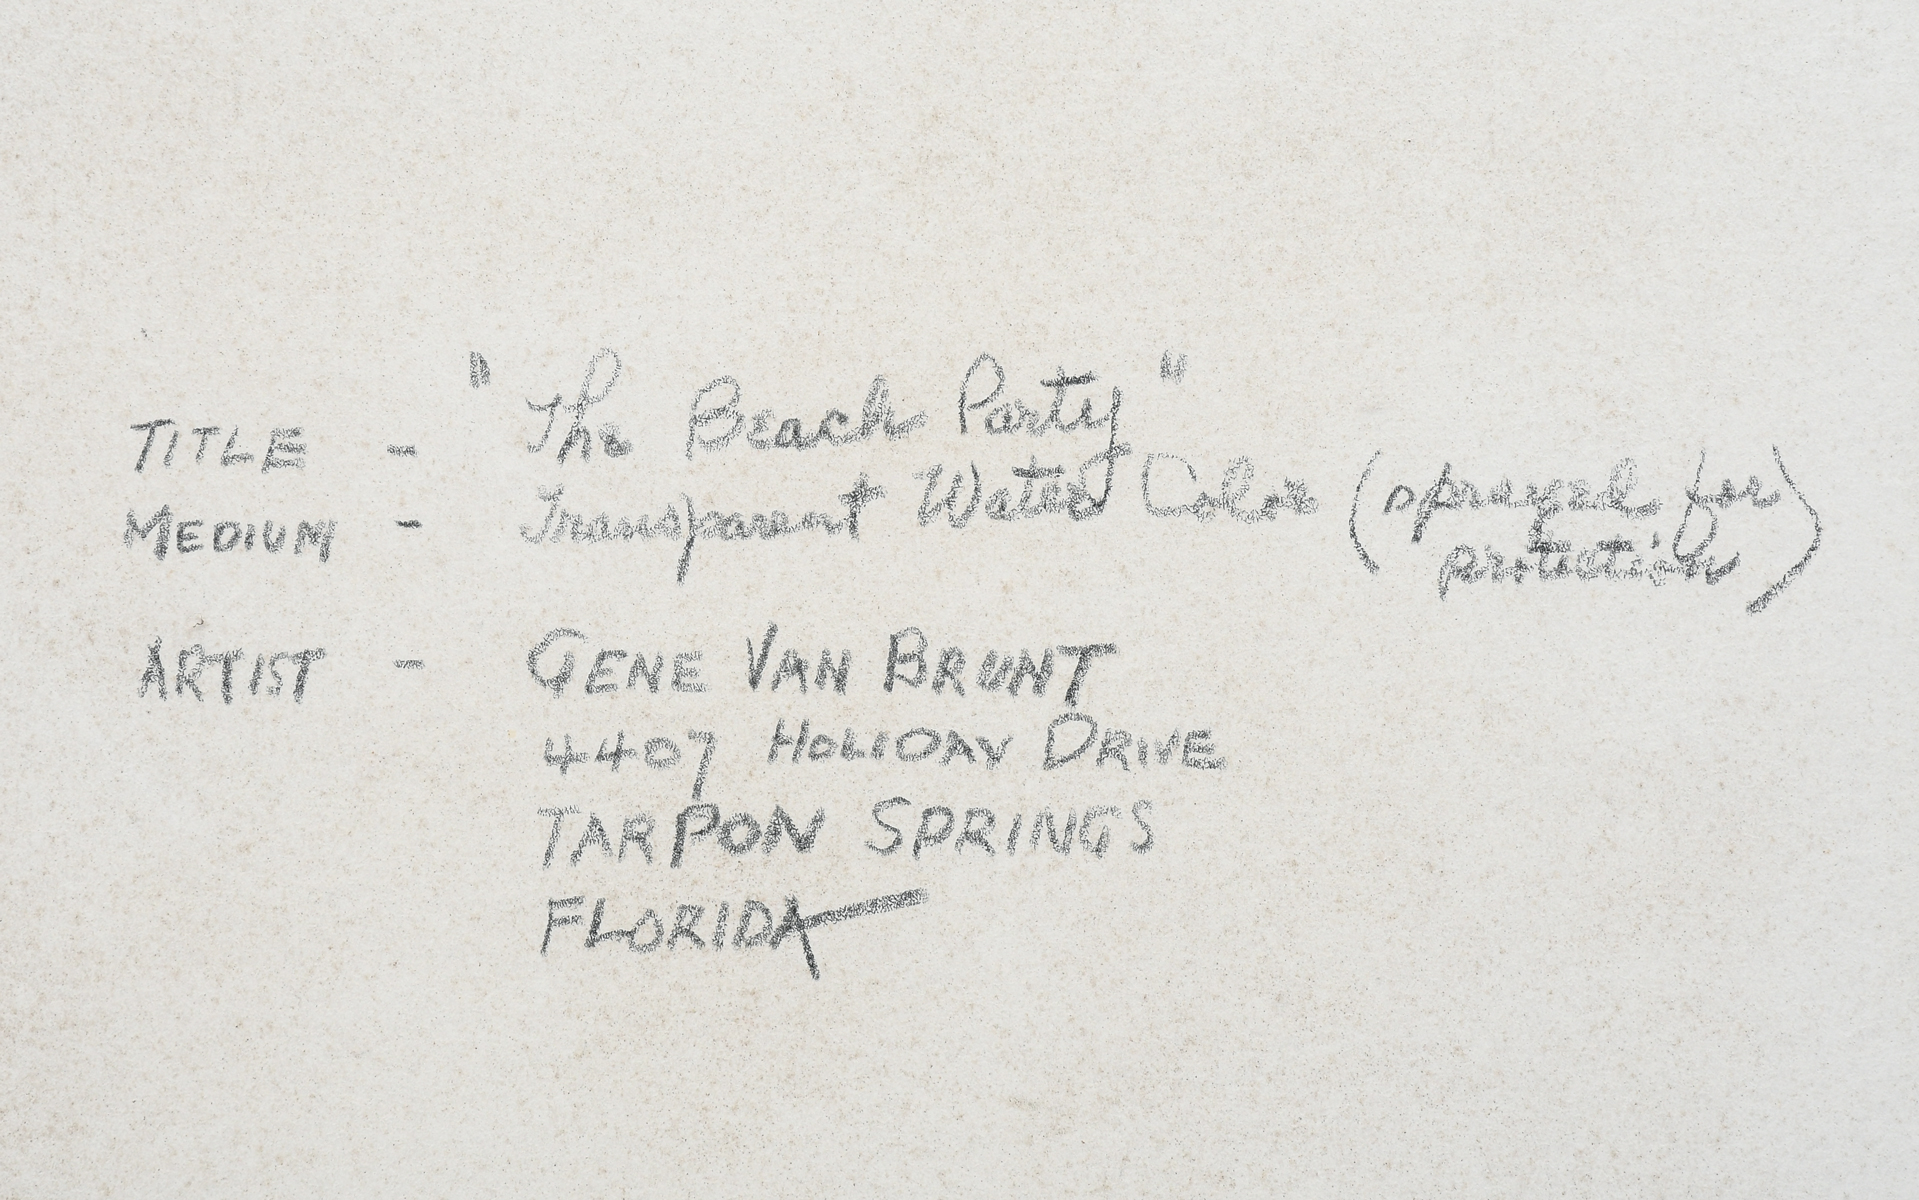 TITLE - "The Beach Party"
MEDIUM - Transparent Water Color (sprayed for
protection)
ARTIST - GENE VAN BRUNT
4407 HOLIDAY DRIVE
TARPON SPRINGS
FLORIDA